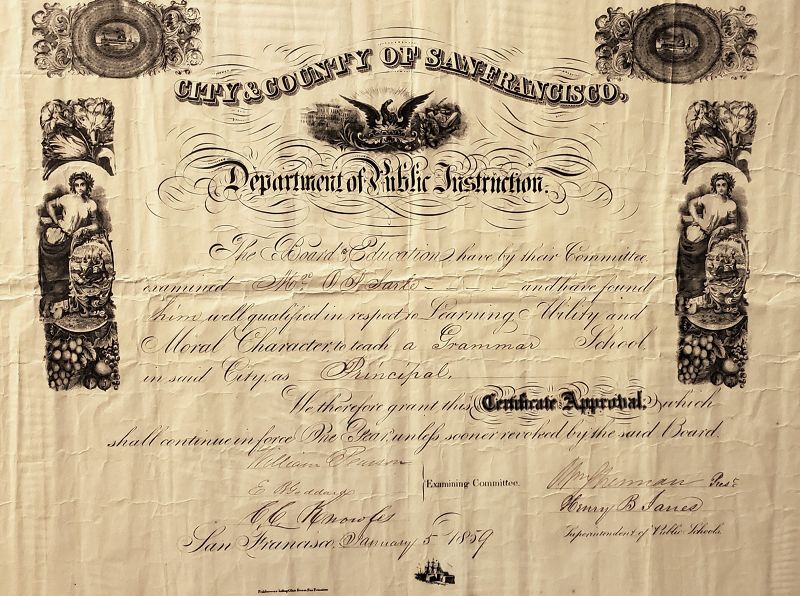 CITY & COUNTY OF SAN FRANCISCO.
Department of Public Instruction.
The Board of Education, have by their Committee
examined Mr. and have found
him well qualified in respect to Learning, Ability and
Moral Character, to teach a Grammar School
in said City, as Principal.
We therefore grant this Certificate Approval, which
shall continue in force One Year, unless sooner revoked by the said Board.
William Pearson
E B Goddard
Examining Committee.
Wm Sherman Prest
C C Knowles
Henry B Janes
San Francisco, January 5 1859
Superintendent of Public Schools